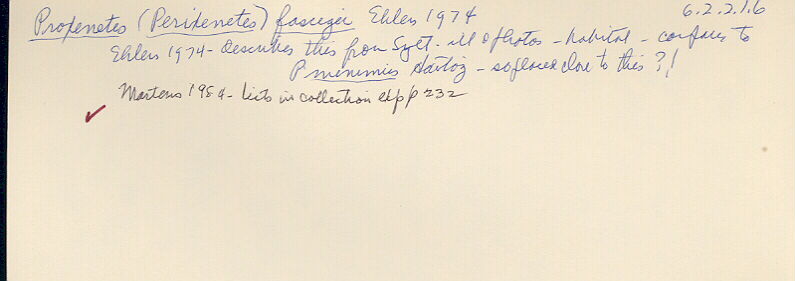 Proxenetes (Perixenetes) fascigei Ehlers 1974 6.2.2.1.6
Ehlers 1974 - describes this from Sylt. ill & photos - habitat - compares to
P. minimus Hartog - so placed close to this ?!
Martens 1984 - lists in collection p 232